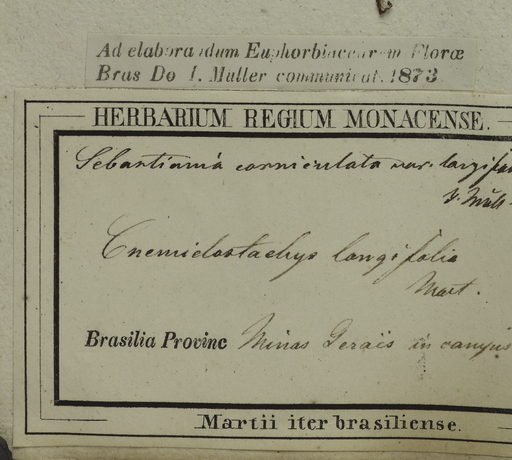 Ad elaborandum Euphorbiacearum Floræ
Bras Do J. Muller communicat. 1873
HERBARIUM REGIUM MONACENSE.
Sebastiania corniculata var. longifol
J. Müll.
Cnemidostachys longifolia
Mart.
Brasilia Provinc Minas Geraës in campis
Martii iter brasiliense.